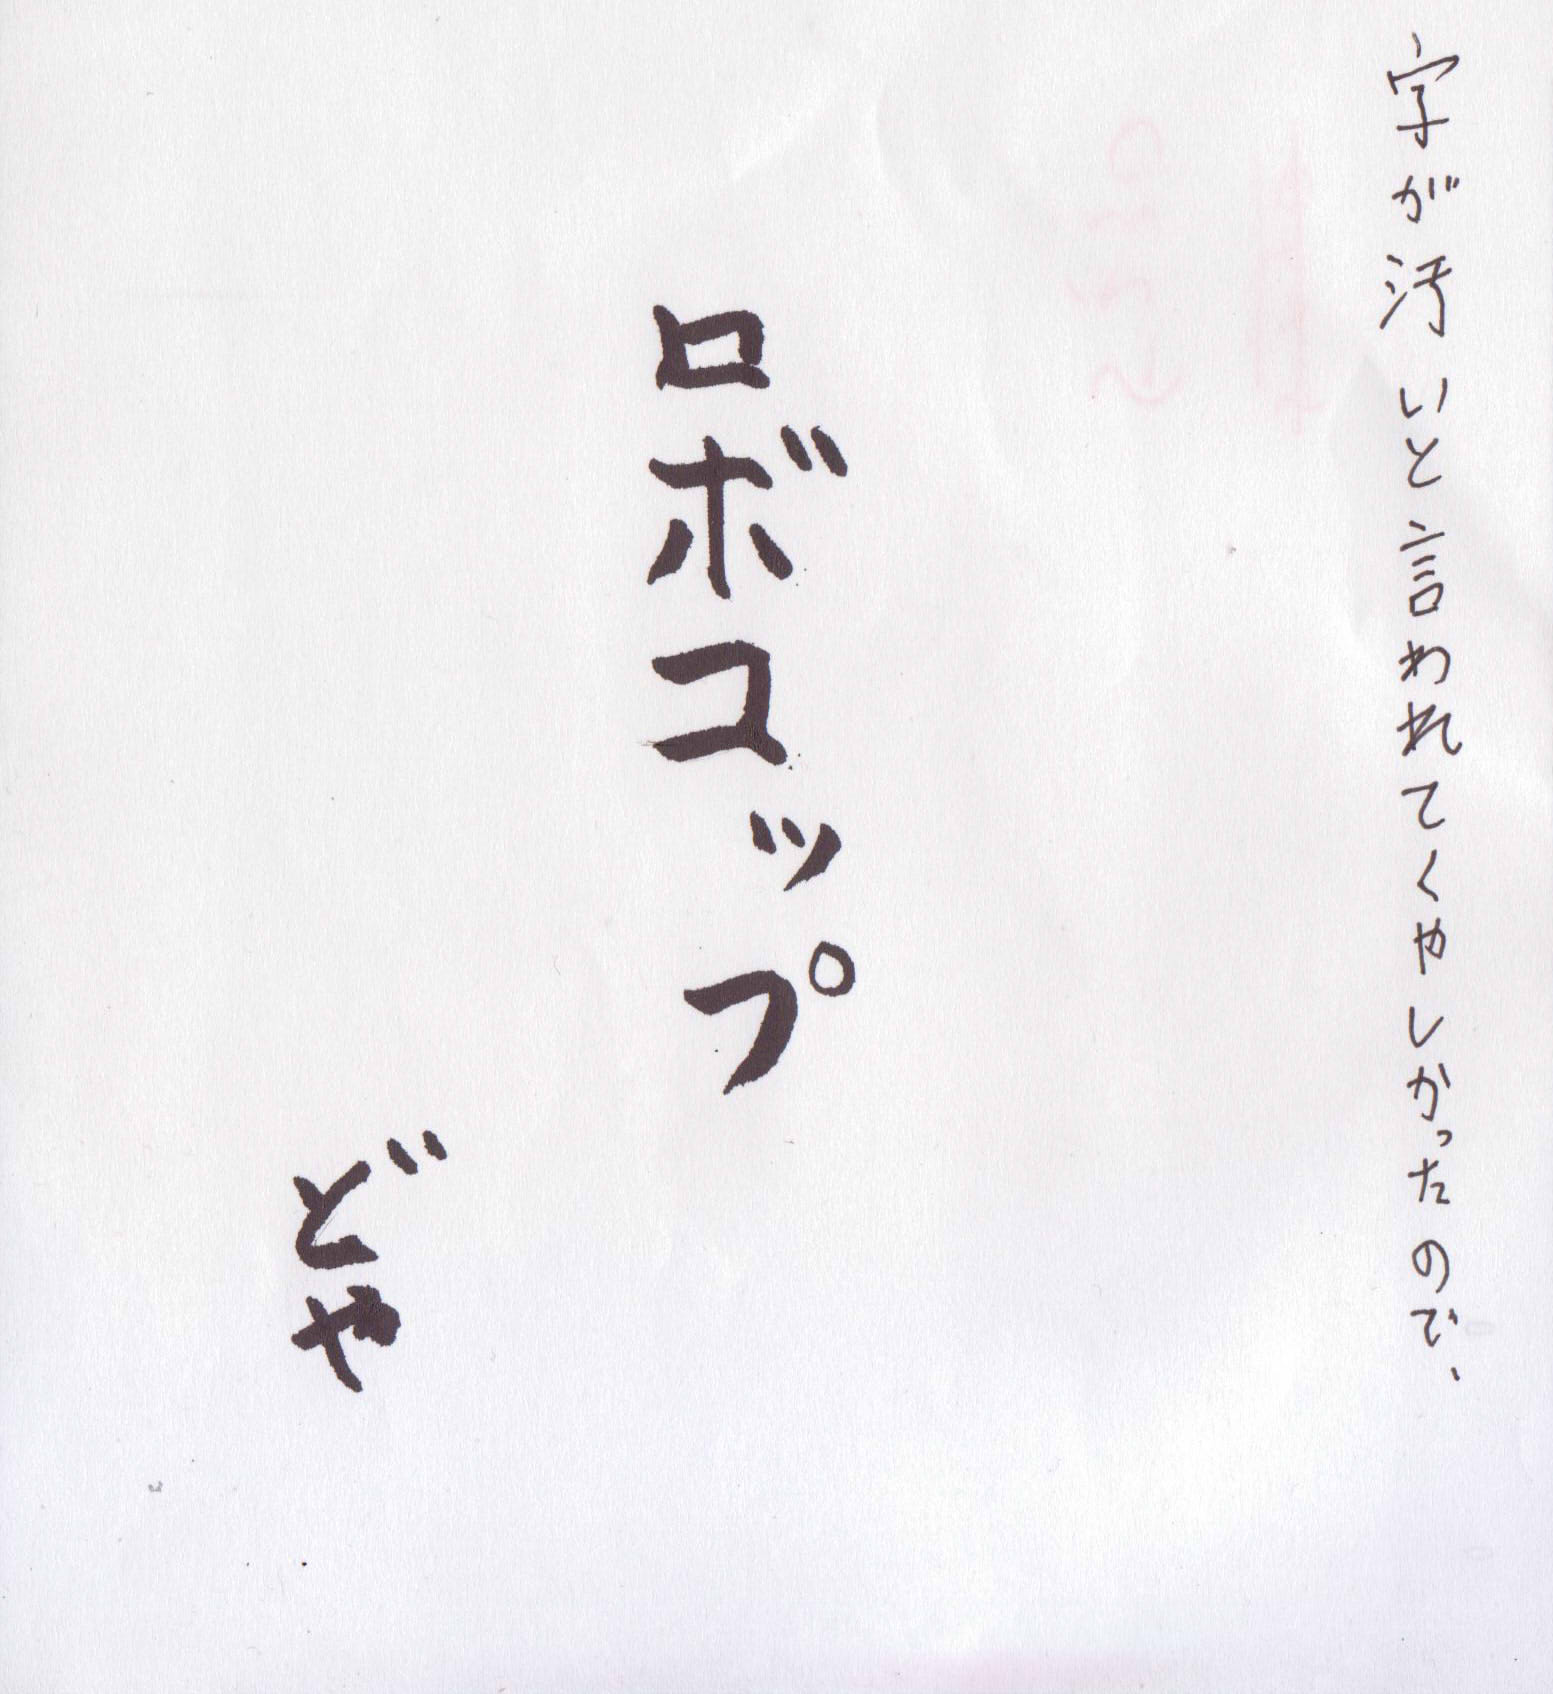 字が汚いと言われてくやしかったので、
ロボコップ
どや